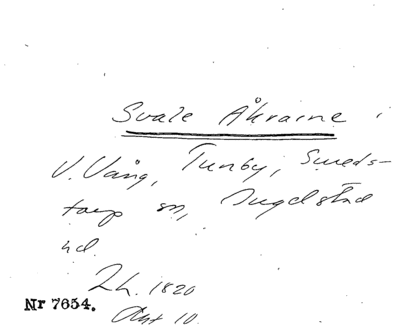 Svale Åkrarne i
V. Vång, Tunby, Smeds-
torp sn, Ingelstad
hd.
Lh. 1820
Akt 10.
Nr 7654.